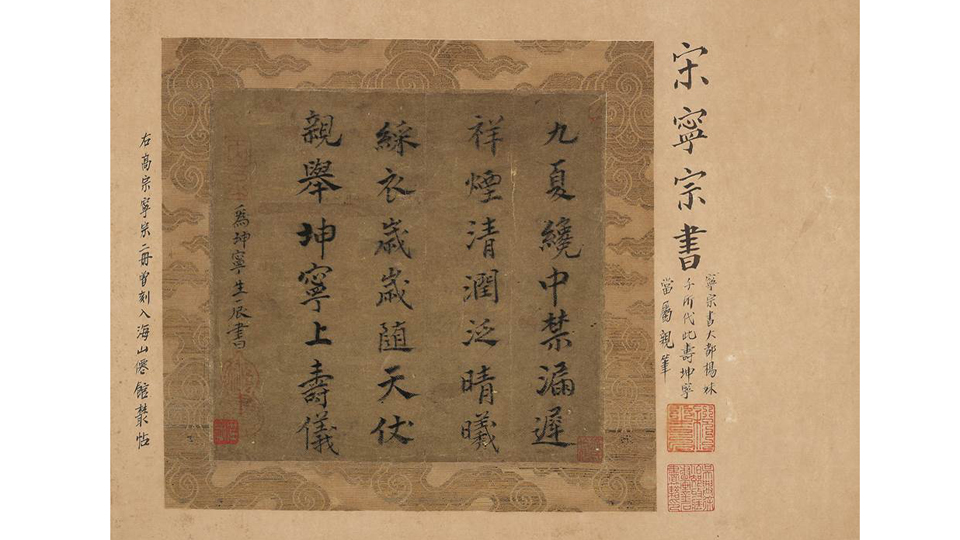 宋寧宗書
寧宗書大都楊妹
子所代此壽坤寧
當屬親筆
九夏繞中禁漏遲
祥煙清潤泛晴曦
綵衣歳歳随天仗
親舉坤寧上壽儀
爲坤寧生辰書
右高宗寧宗二冊曾刻入海山僊館叢帖